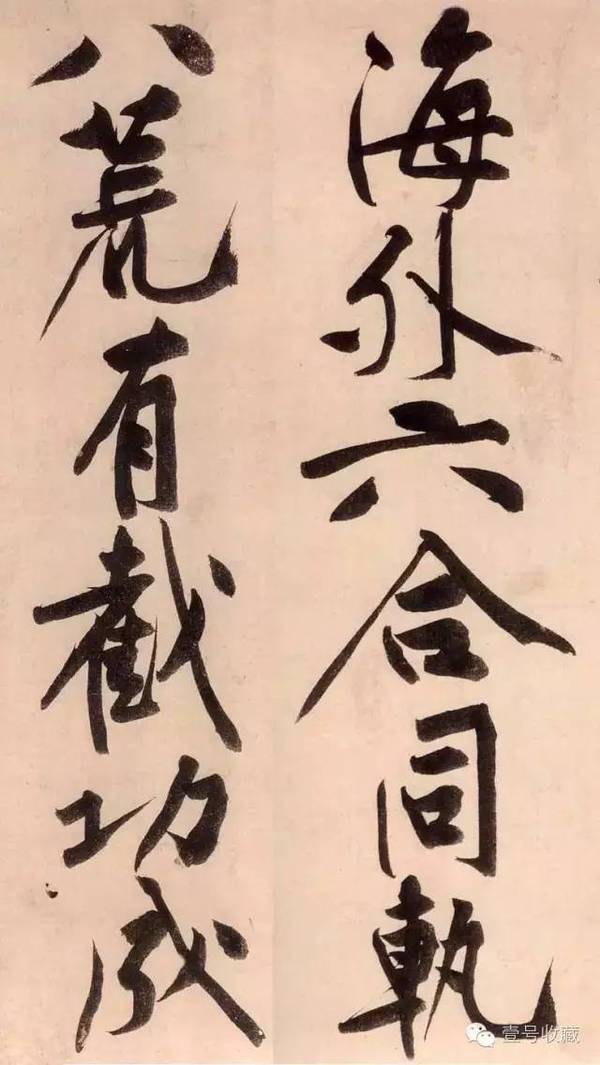 海外六合同軌
八荒有截功成
壹号收藏